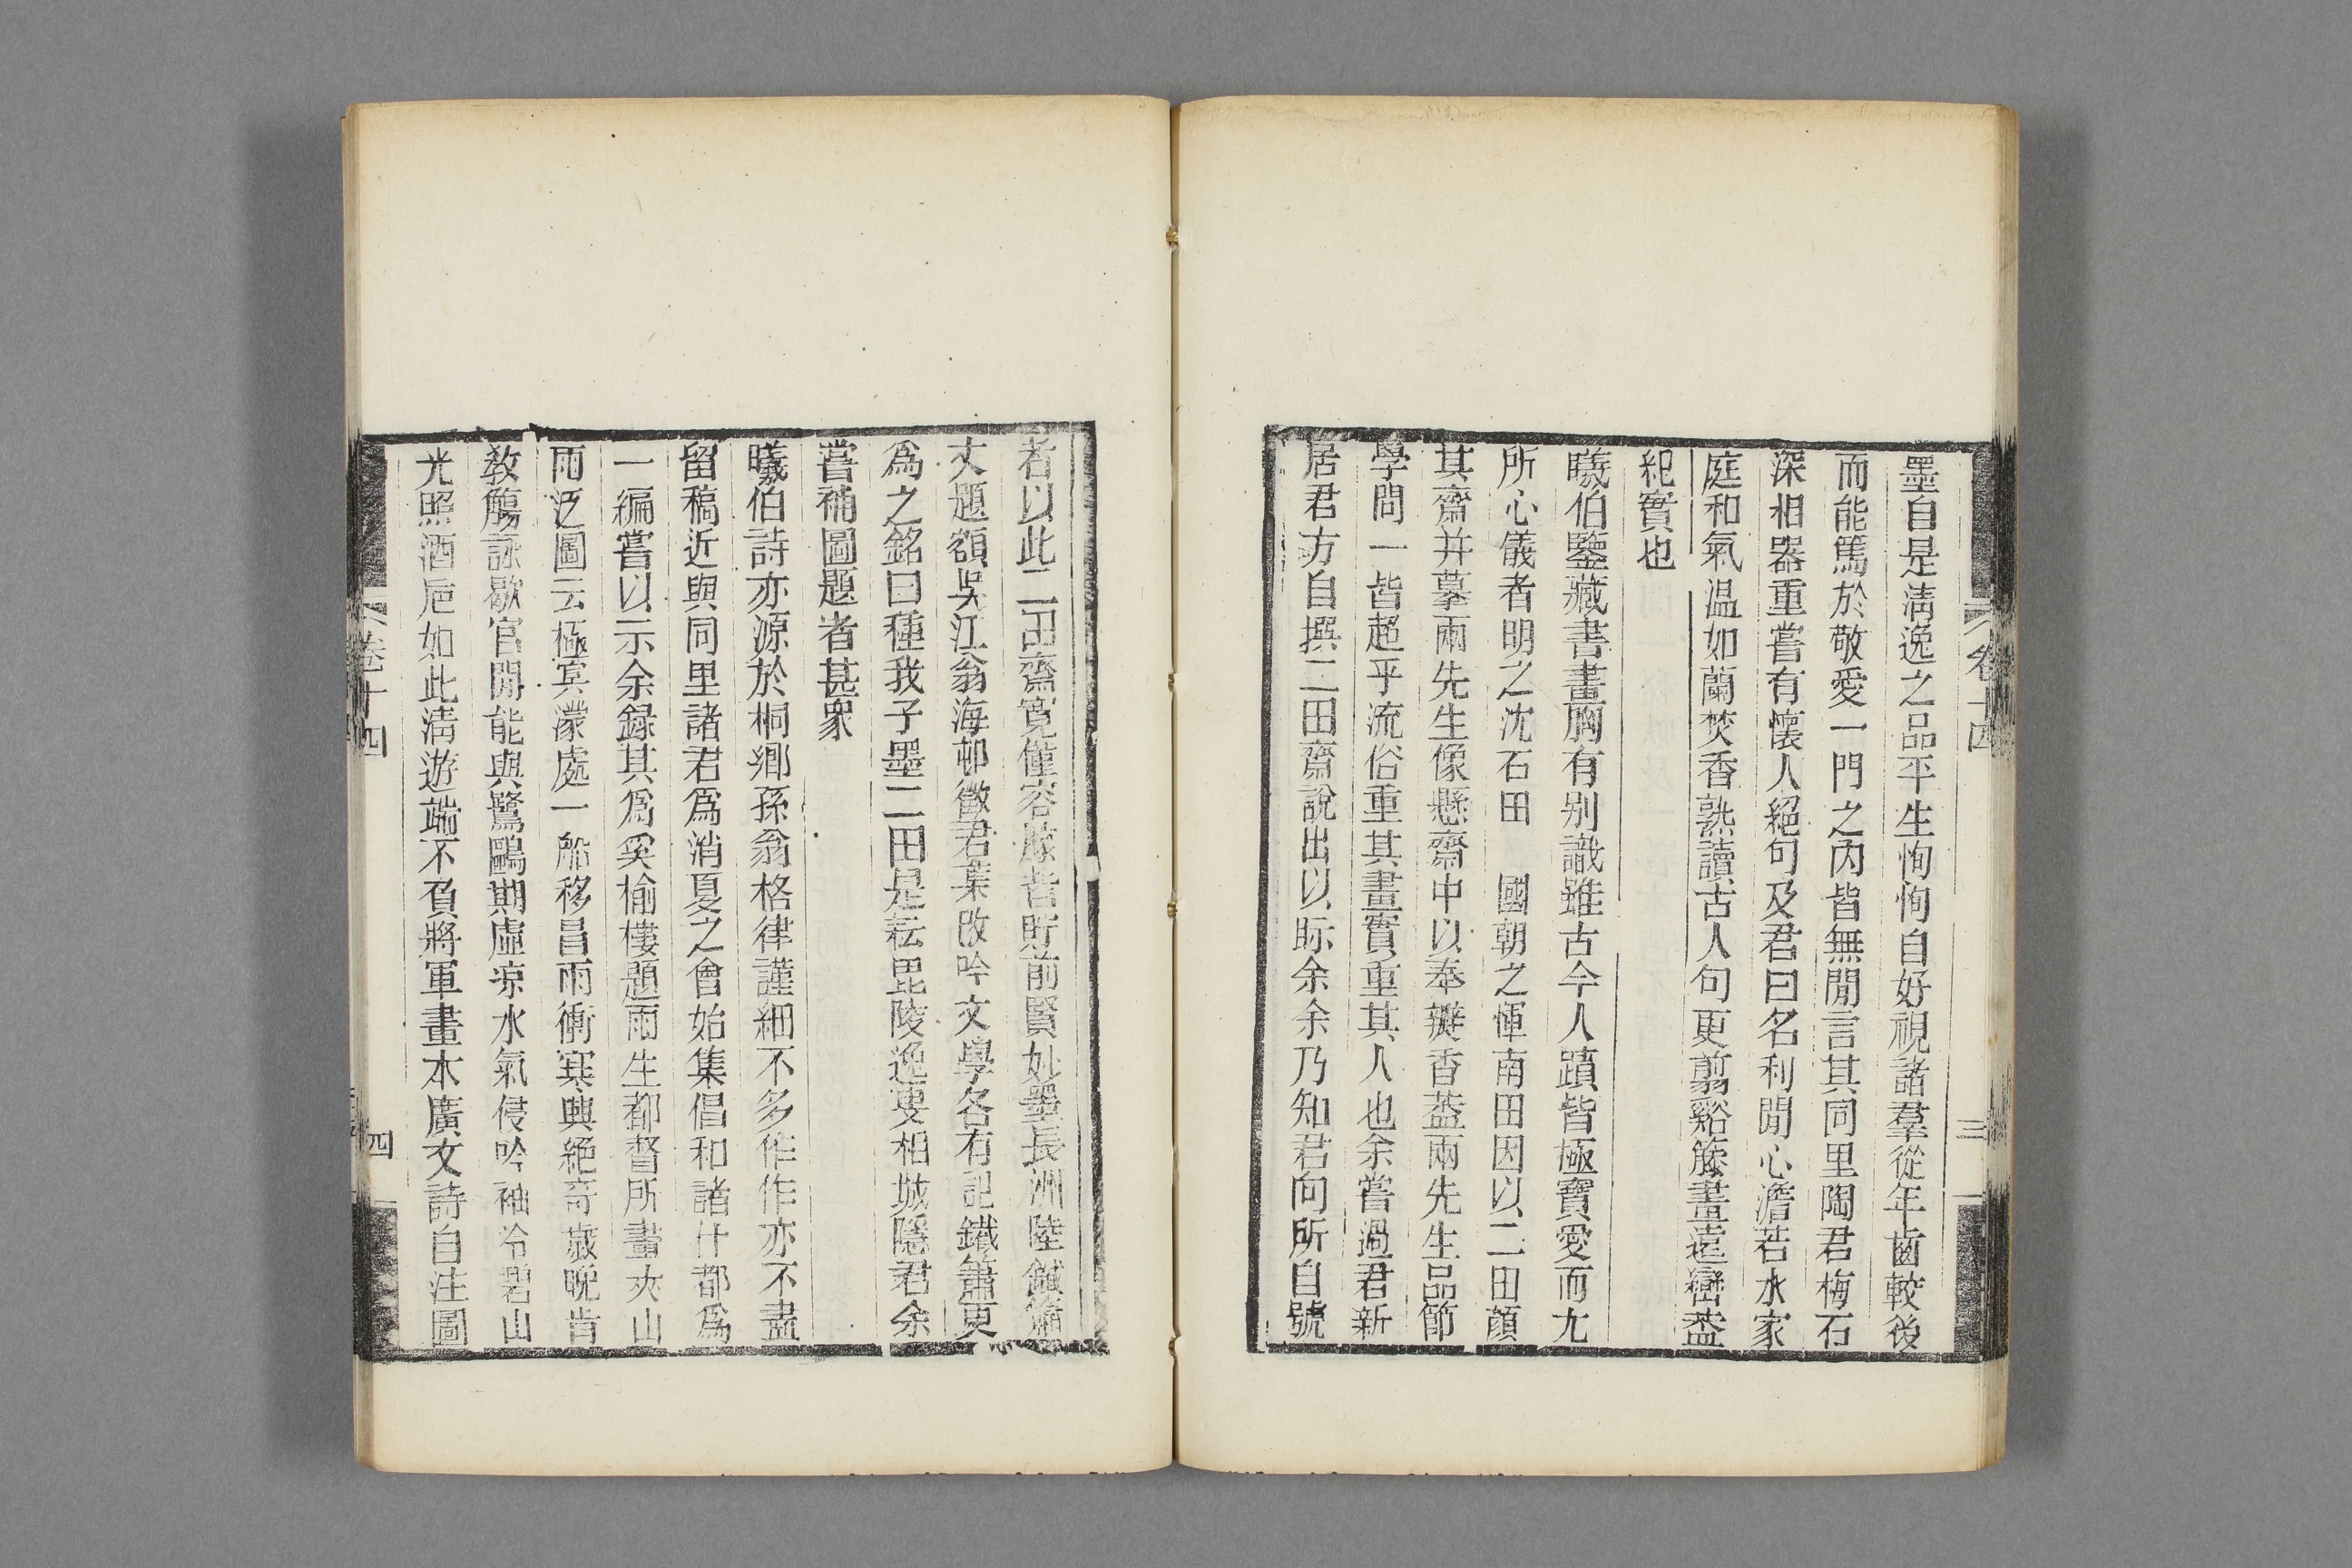 卷十四
三
墨自是清逸之品平生恂恂自好視諸羣從年齒較後
而能篤於敬愛一門之內皆無閒言其同里陶君梅石
深相器重嘗有懷人絕句及君曰名利閒心澹若水家
庭和氣溫如蘭焚香熟讀古人句更翦谿籐畫遠巒葢
紀實也
曦伯鑒藏書畫胸有別識雖古今人蹟皆極寶愛而尤
所心儀者明之沈石田 國朝之惲南田因以二田顏
其齋并摹兩先生像懸齋中以奉瓣香葢兩先生品節
學問一皆超乎流俗重其畫實重其人也余嘗過君新
居君方自撰二田齋說出以眎余余乃知君向所自號
者以此二田齋寬僅容膝皆貯前賢妙墨長洲陸鐵簫
丈題額吳江翁海邨徵君葉改吟文學各有記鐵簫更
爲之銘曰種我子墨二田是耘毘陵逸叟相城隱君余
嘗補圖題者甚衆
曦伯詩亦源於桐鄉孫翁格律謹細不多作作亦不盡
留稿近與同里諸君爲消夏之會始集倡和諸什都爲
一編嘗以示余錄其爲奚榆樓題雨生都督所畫夾山
雨泛圖云極㝠濛處一船移昌雨衝寒興絕奇歲晚肯
敎觴詠歇官閒能與鷺鷗期虛凉水氣侵吟袖冷碧山
光照酒巵如此淸遊端不負將軍畫本廣文詩自注圖
卷十四
四